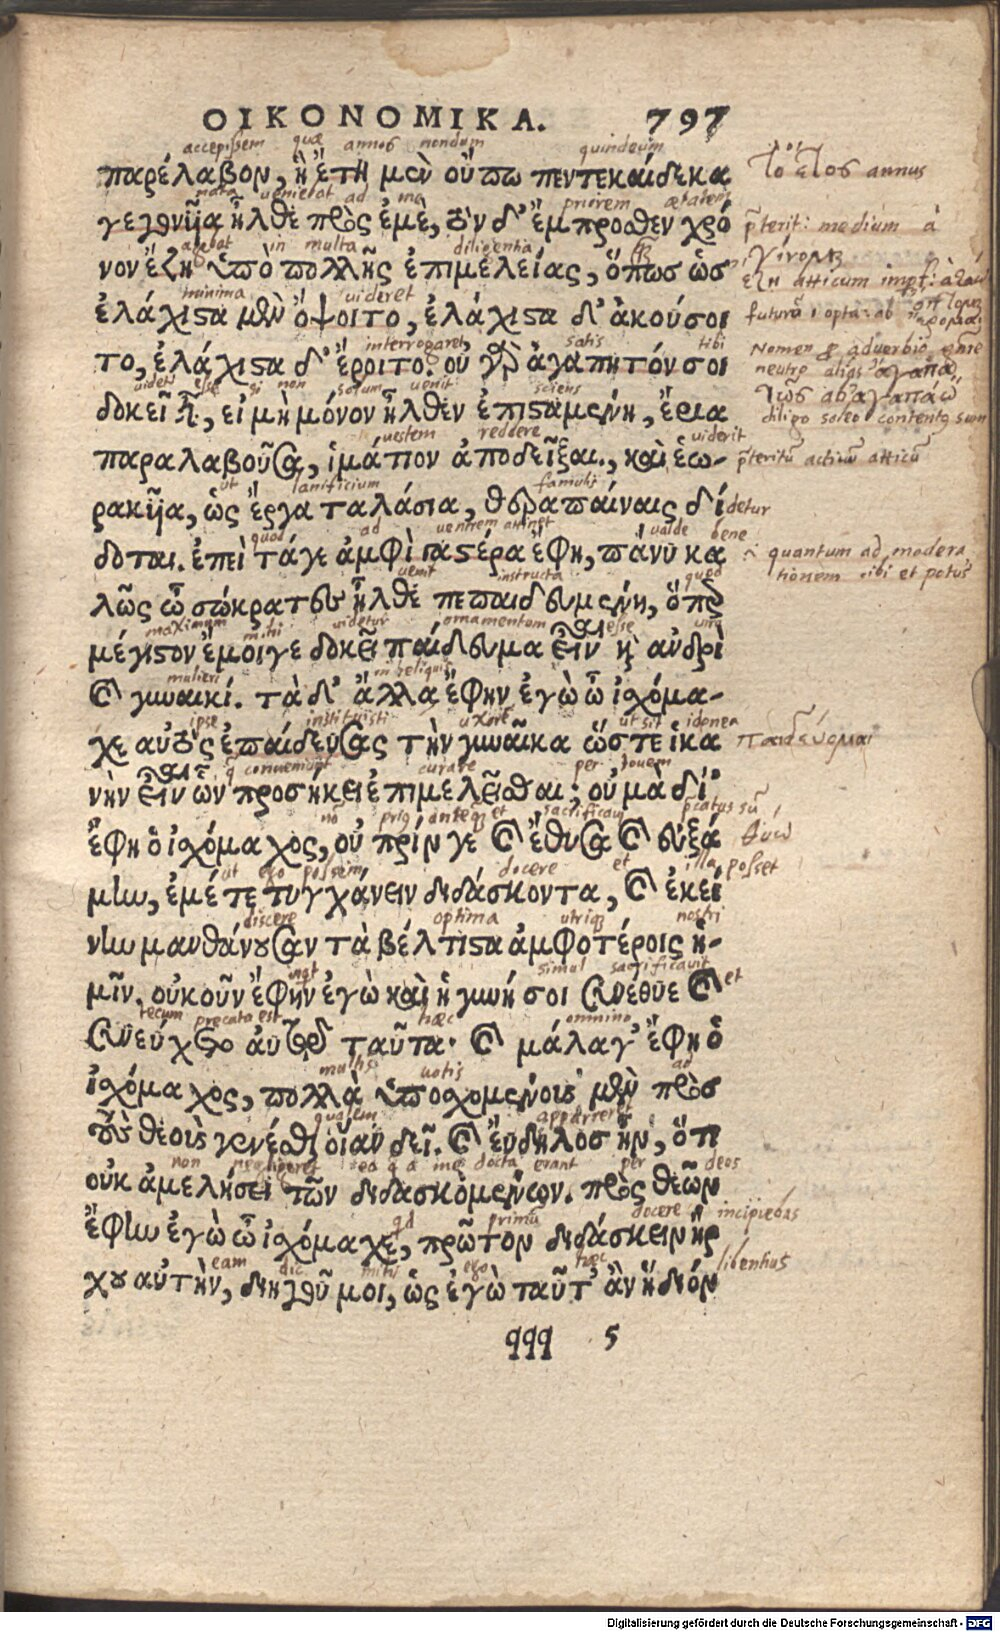 ΟΙΚΟΝΟΜΙΚΑ. 797
accepissem quæ annos nondum quindecim
παρέλαβον, ἣ ἔτη μὲν οὔπω πεντεκαίδεκα
τὸ ἔτος annus
nata veniebat ad me priorem ætatem
γεγονυῖα ἦλθε πρὸς ἐμὲ, τὸν δ' ἔμπροσθεν χρό
p̄terit: medium à
agebat in multa diligentia
νον ἔζη ὑπὸ πολλῆς ἐπιμελείας, ὅπως ὡς
εζη atticum
minima videret
ἐλάχιστα μὲν ὄψοιτο, ἐλάχιστα δ' ἀκούσοι
interrogaret satis tibi
το, ἐλάχιστα δ' ἔροιτο. οὐ γὰρ ἀγαπητόν σοι
Nomen adverbio
videt esse si non solum venit sciens
δοκεῖ εἶναι, εἰ μὴ μόνον ἦλθεν ἐπισταμένη, ἔρια
diligo soleo contentus sum
vestem reddere viderit
παραλαβοῦσα, ἱμάτιον ἀποδεῖξαι., καὶ ἑω-
p̄teritū activū atticū
ut lanificium famulis
ρακυῖα, ὡς ἔργα ταλάσια, θεραπαίναις δί
detur
quod ad ventrem attinet valde bene
δοται. ἐπεὶ τάγε ἀμφὶ γαστέρα ἔφη, πάνυ κα
quantum ad modera
tionem cibi et potus
venit instructa quod
λῶς ὦ σώκρατες ἦλθε πεπαιδευμένη, ὅπερ
maximum mihi videtur ornamentum esse viro
μέγιστον ἐμοίγε δοκεῖ παίδευμα εἶναι κ̀ ἀνδρὶ
mulieri in reliquis
καὶ γυναικί. τὰ δ' ἄλλα ἔφην ἐγὼ ὦ ἰσχόμα-
ipse instituisti uxorē ut sit idonea
χε αὐτὸς ἐπαίδευσας τὴν γυναῖκα ὥστε ἱκα
παιδεύομαι
q̄ conveniunt curare per Iovem
νὴν εἶναι ὧν προσήκει ἐπιμελεῖσθαι; οὐ μὰ δί'
nō prius anteq̄ et sacrificavi p̄catus sū
ἔφη ὁ ἰσχόμαχος, οὐ πρίν γε καὶ ἔθυσα καὶ εὐξά
θύω
ut ego possem docere et illa posset
μην, ἐμέ τε τυγχάνειν διδάσκοντα, καὶ ἐκεί
discere optima utrisq; nostri
νην μανθάνουσαν τὰ βέλτιστα ἀμφοτέροις ἡ-
simul sacrificavit et
μῖν. οὐκοῦν ἔφην ἐγὼ καὶ ἡ γυνή σοι συνέθυε καὶ
tecum precata est hæc omnino
συνεύχετο αὐτὰ ταῦτα· καὶ μάλαγ' ἔφη ὁ
multis votis ad
ἰσχόμαχος, πολλὰ ὑποσχομένοις μὲν πρὸς
qualem appareret
τοὺς θεοὺς γενέσθαι οἵαν δεῖ. καὶ εὔδηλος ἦν, ὅτι
non negligeret ea q̄ a me docta erant per deos
οὐκ ἀμελήσει τῶν διδασκομένων. πρὸς θεῶν
qd primū docere incipiebas
ἔφην ἐγὼ ὦ ἰσχόμαχε, πρῶτον διδάσκειν ἤρ
eam dic mihi ego hæc libentius
χου αὐτὴν, διηγοῦ μοι, ὡς ἐγὼ ταῦτ' ἂν ἥδιόν
qqq 5
Digitalisierung gefördert durch die Deutsche Forschungsgemeinschaft - DFG